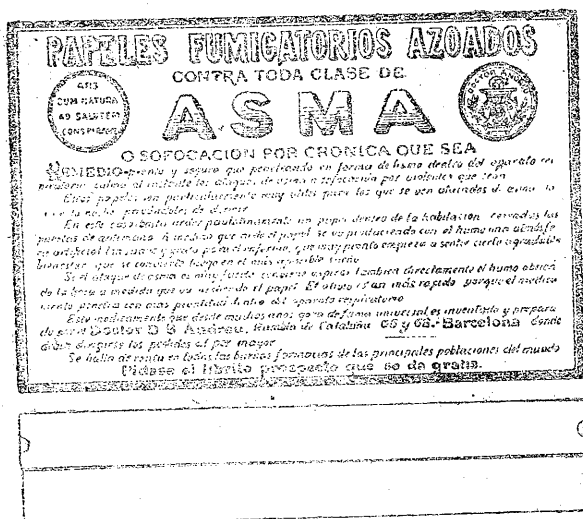 PAPELES FUMIGATORIOS AZOADOS
CONTRA TODA CLASE DE
ARS
CUM NATURA
AD SALUTEM
CONSPIRANS
ASMA
DOCTOR ANDREU
O SOFOCACION POR CRONICA QUE SEA
REMEDIO pronto y seguro que penetrando en forma de humo dentro del aparato res
piratorio calma al instante los ataques de asma o sofocación por violentos que sean
Estos papeles son particularmente muy útiles para los que se ven atacados de asma
por la noche privándoles de dormir
En este caso basta arder paulatinamente un papel dentro de la habitación cerradas las
puertas de antemano A medida que arde el papel se va produciendo con el humo una atmósfe
ra artificial y grata para el enfermo, que muy pronto empieza a sentir cierto agradable
bienestar que se convierte luego en el más apacible sueño
Si el ataque de asma es muy fuerte conviene aspirar tambien directamente el humo
de la boca a medida que va ardiendo el papel El alivio es aun más rapido porque el medica
mento penetra con más prontitud dentro del aparato respiratorio
Este medicamento que desde muchos años goza de fama universal es inventado y prepara
do por el Doctor D S Andreu, Rambla de Cataluña 66 y 68.-Barcelona donde
deben dirigirse los pedidos al por mayor
Se halla de venta en todas las buenas farmacias de las principales poblaciones del mundo
Pidase el librito prospecto que se da gratis.